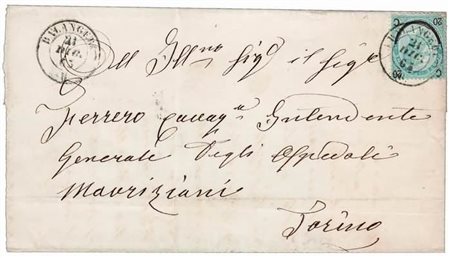 BALANGERO
21
DIC.
All Ill.mo Sig.r il Sig.r
Ferrero Cavag.re Intendente
Generale Degli Ospedali
Mauriziani
Torino
C 20
20 C
21
DIC.